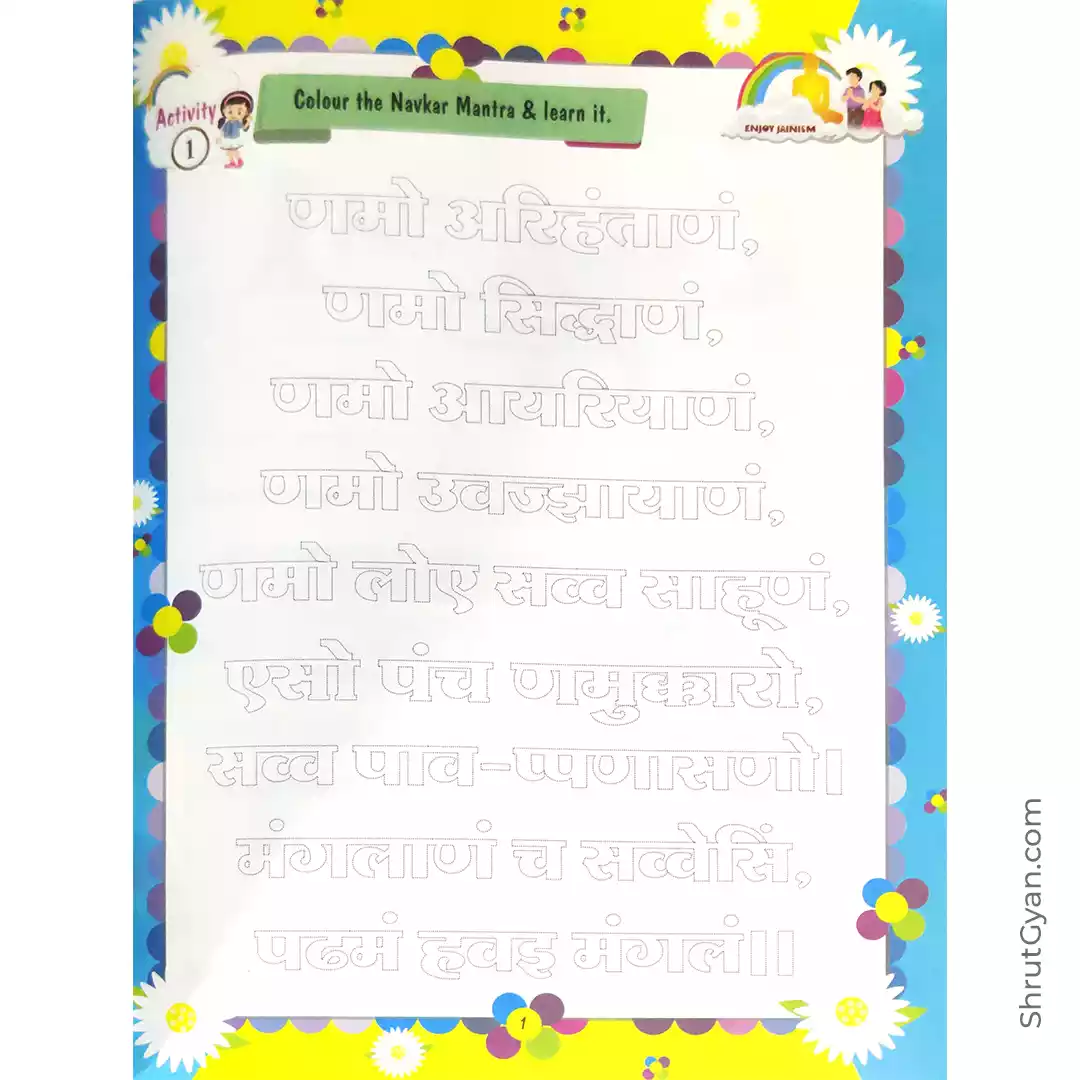 Activity
1
Colour the Navkar Mantra & learn it.
ENJOY JAINISM
णमो अरिहंताणं,
णमो सिद्धाणं,
णमो आयरियाणं,
णमो उवज्झायाणं,
णमो लोए सव्व साहूणं,
एसो पंच णमुक्कारो,
सव्व पाव-प्पणासणो।
मंगलाणं च सव्वेसिं,
पढमं हवइ मंगलं।।
1
ShrutGyan.com